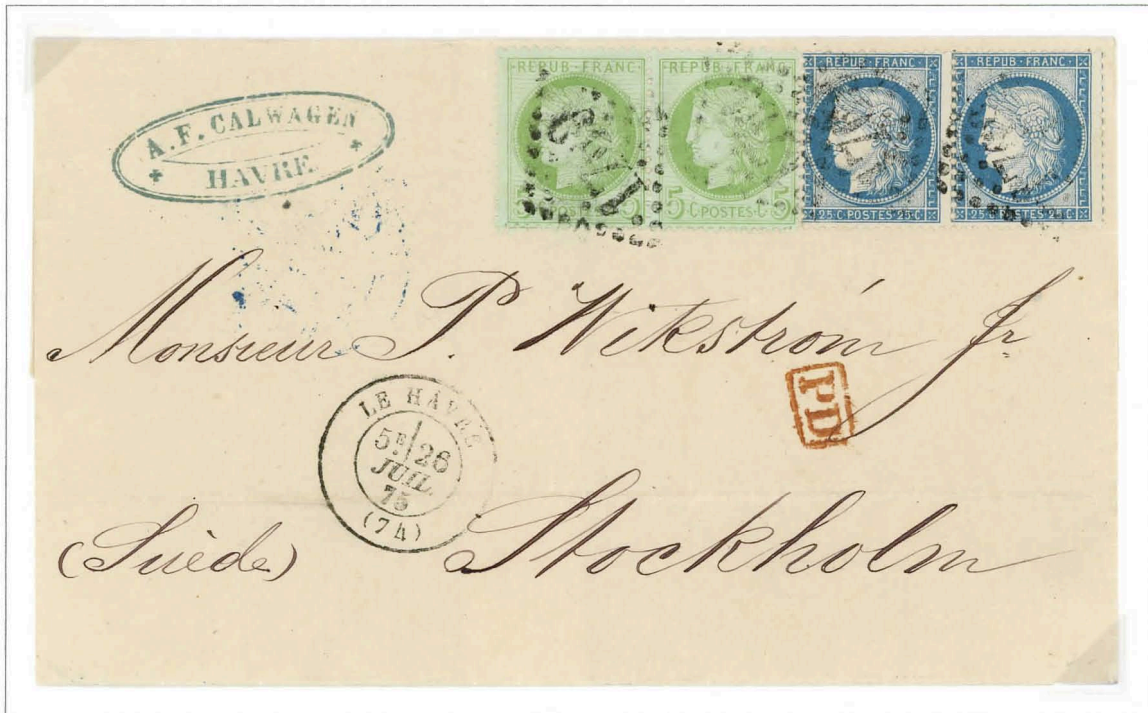 A. F. CALWAGEN
HAVRE
REPUB · FRANC
5 C · POSTES · 5 C
REPUB · FRANC
5 C · POSTES · C 5
REPUB · FRANC
25 C · POSTES · 25 C
REPUB · FRANC
25 C · POSTES · 25 C
Monsieur P. Wikström Jr
PD
LE HAVRE
5E 26
JUIL.
75
(74)
(Suède) Stockholm